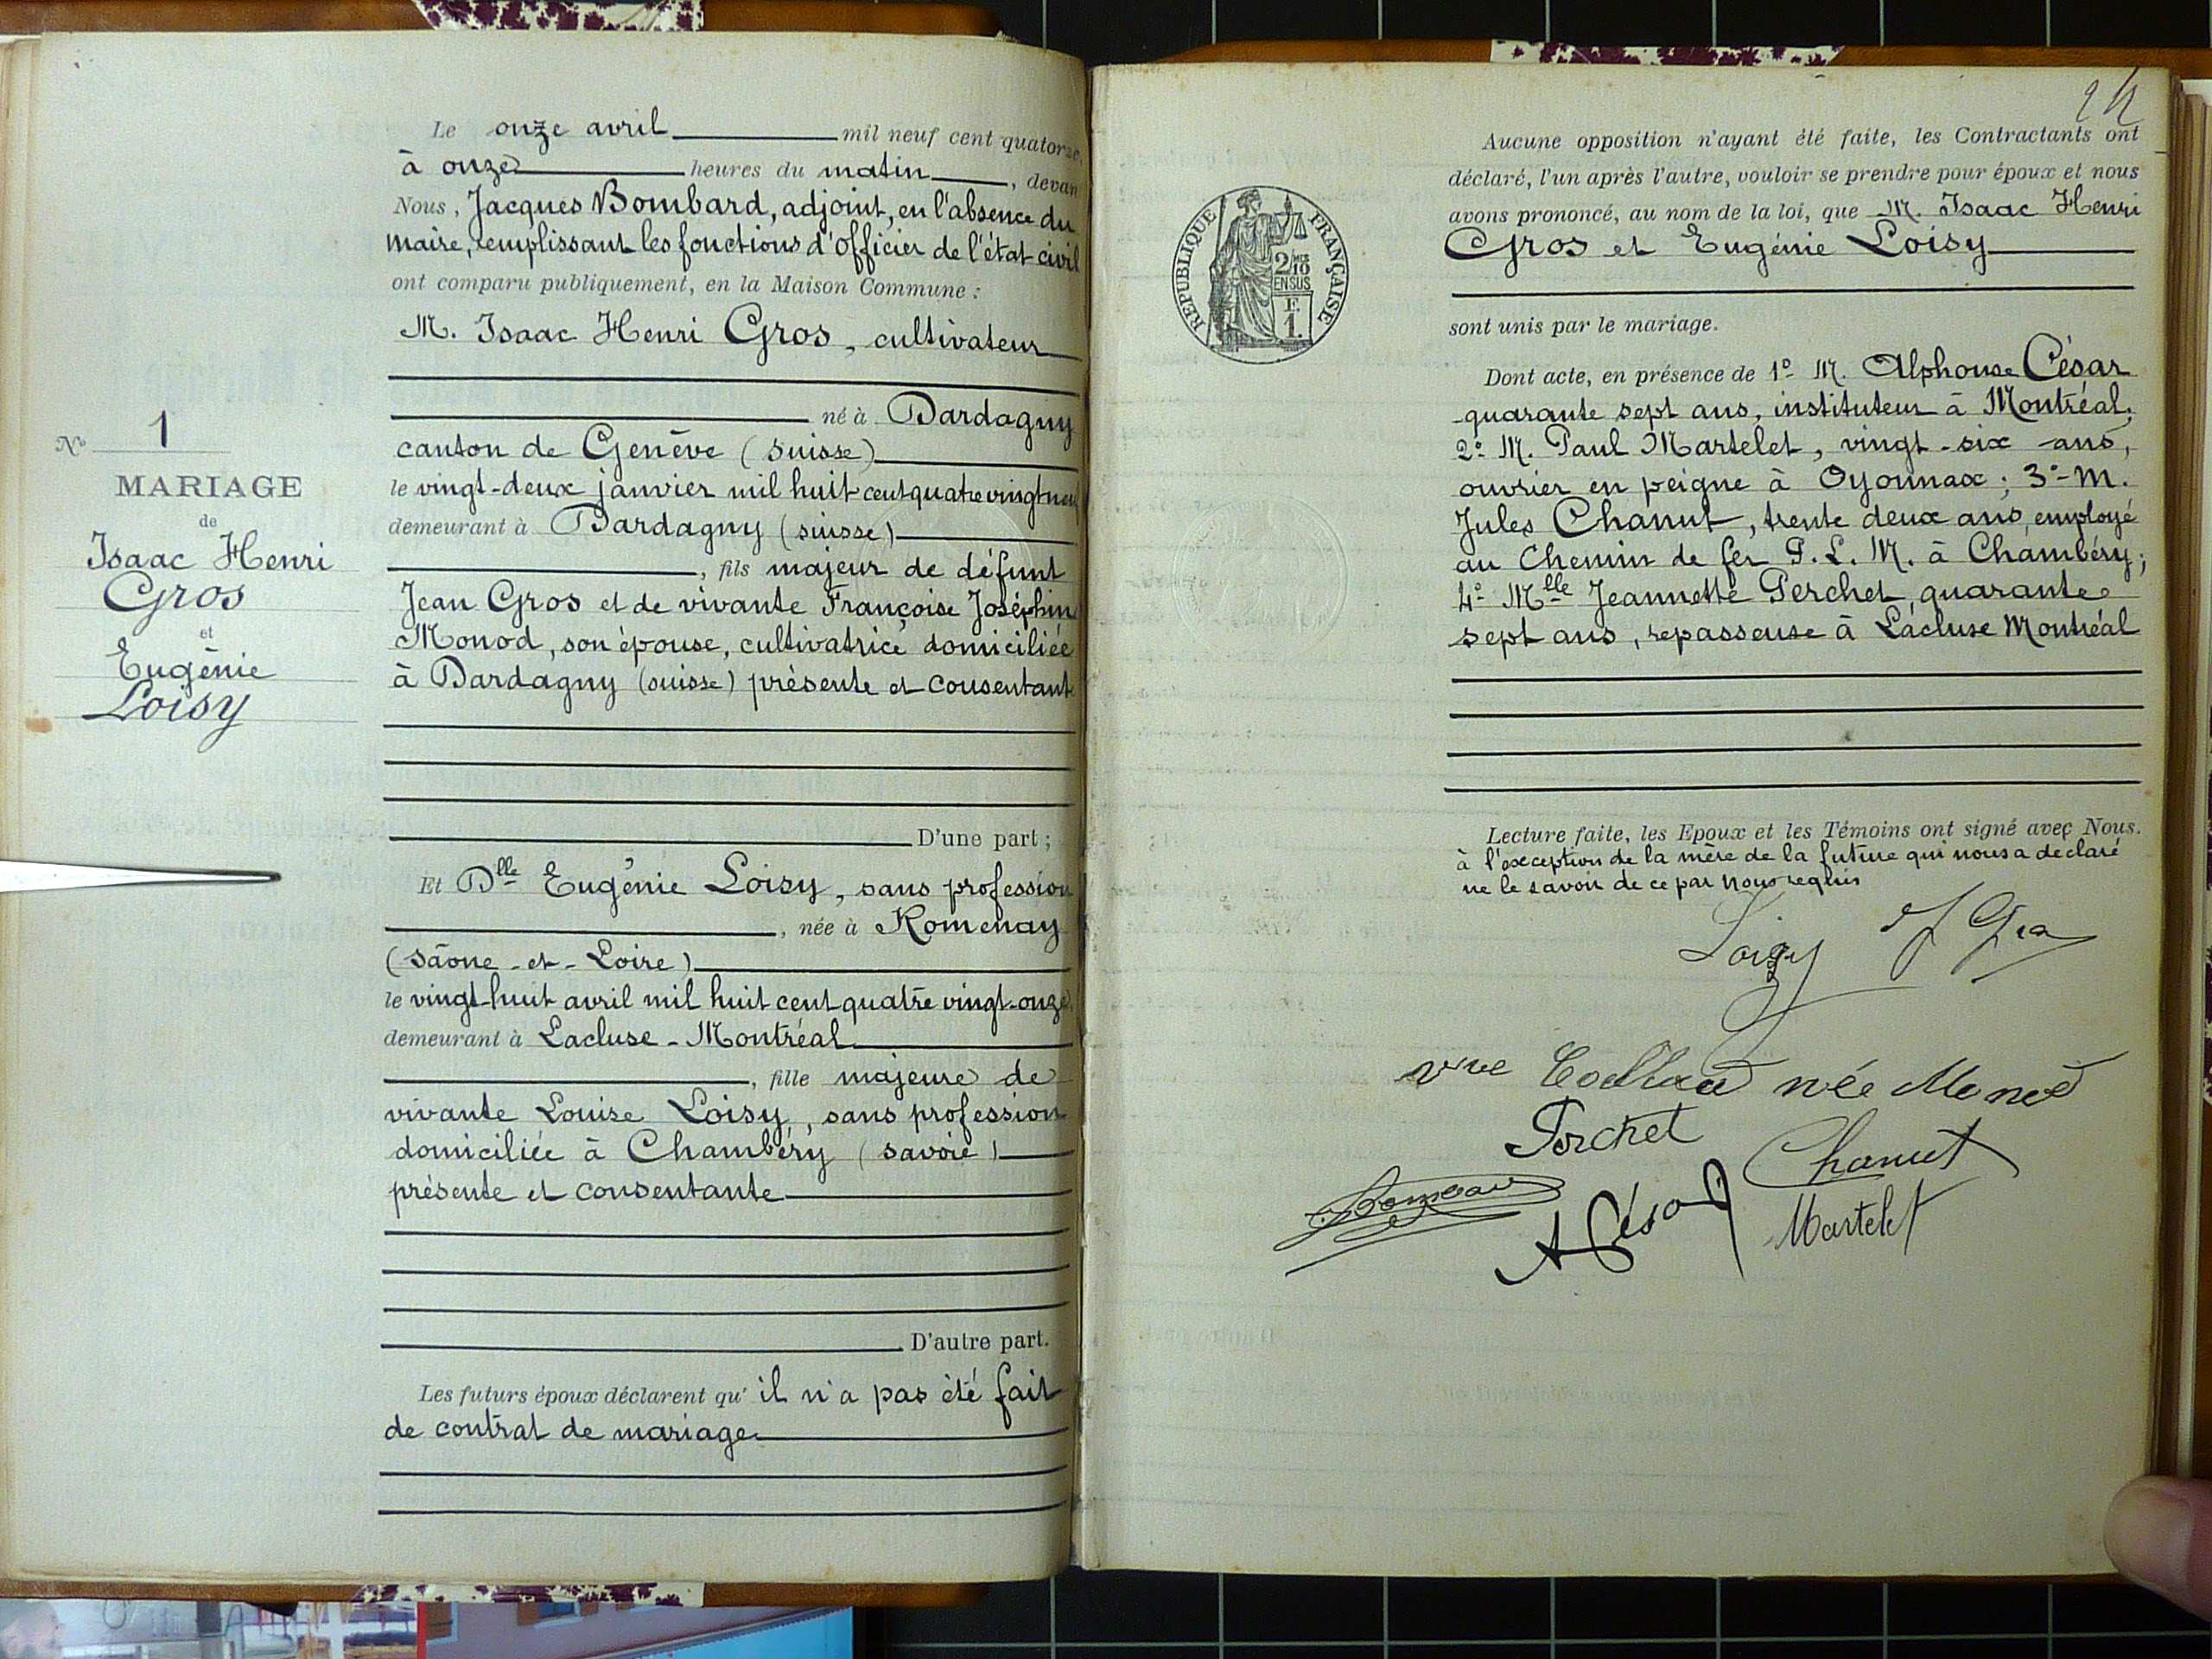 N° 1
MARIAGE
de
Isaac Henri
Gros
et
Eugénie
Loisy
Le onze avril mil neuf cent quatorze,
à onze heures du matin, devan
Nous, Jacques Bombard, adjoint, en l'absence du
maire, remplissant les fonctions d'officier de l'état civil
ont comparu publiquement, en la Maison Commune :
M. Isaac Henri Gros, cultivateur
né à Dardagny
canton de Genève (suisse)
le vingt-deux janvier mil huit cent quatre vingt neuf
demeurant à Dardagny (suisse)
, fils majeur de défunt
Jean Gros et de vivante Françoise Joséphine
Monod, son épouse, cultivatrice domiciliée
à Dardagny (suisse) présente et consentante
D'une part ;
Et Dlle Eugénie Loisy, sans profession
, née à Romenay
(Sâone-et-Loire)
le vingt-huit avril mil huit cent quatre vingt-onze,
demeurant à Lacluse-Montréal
, fille majeure de
vivante Louise Loisy, sans profession
domiciliée à Chambéry (savoie)
présente et consentante
D'autre part.
Les futurs époux déclarent qu'il n'a pas été fait
de contrat de mariage
24
REPUBLIQUE FRANÇAISE
2/10
EN SUS
F.
1.
Aucune opposition n'ayant été faite, les Contractants ont
déclaré, l'un après l'autre, vouloir se prendre pour époux et nous
avons prononcé, au nom de la loi, que M. Isaac Henri
Gros et Eugénie Loisy
sont unis par le mariage.
Dont acte, en présence de 1° M. Alphonse César
quarante sept ans, instituteur à Montréal;
2° M. Paul Martelet, vingt-six ans,
ouvrier en peigne à Oyonnax; 3°- M.
Jules Chanut, trente deux ans, employé
au Chemin de fer P.L.M. à Chambéry;
4° Mlle Jeannette Perchet, quarante
sept ans, repasseuse à Lacluse Montréal
Lecture faite, les Epoux et les Témoins ont signé avec Nous.
à l'exception de la mère de la future qui nous a déclaré
ne le savoir de ce par nous requis
Loisy
vve née Monod
Perchet
Chanut
A César
Martelet